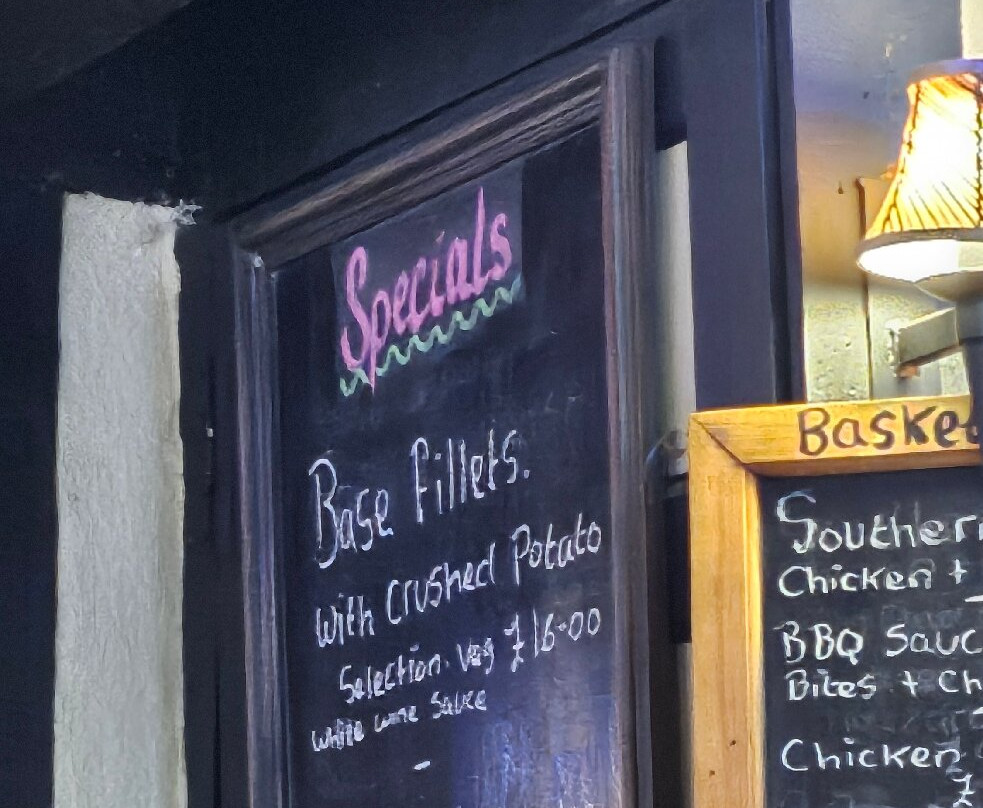 Specials
Base Fillets.
with crushed Potato
Selection. veg £16-00
white wine Sauce
Basket
Southern
Chicken +
BBQ Sauc
Bites + Ch
Chicken
£